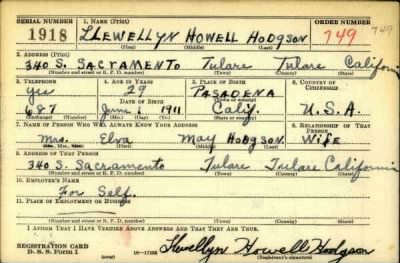 SERIAL NUMBER 1. NAME (Print) ORDER NUMBER
1918 LLEWELLYN HOWELL HODGSON 749 749
(First) (Middle) (Last)
2. ADDRESS (Print)
340 S. SACRAMENTO Tulare Tulare California
(Number and street or R. F. D. number) (Town) (County) (State)
3. TELEPHONE 4. AGE IN YEARS 5. PLACE OF BIRTH 6. COUNTRY OF CITIZENSHIP
yes 29 PASADENA
DATE OF BIRTH (Town or county)
687 June 1 1911 Calif. U.S.A.
(Exchange) (Number) (Mo.) (Day) (Yr.) (State or country)
7. NAME OF PERSON WHO WILL ALWAYS KNOW YOUR ADDRESS 8. RELATIONSHIP OF THAT PERSON
Mrs. Elva May Hodgson Wife
(Mr., Mrs., Miss) (First) (Middle) (Last)
9. ADDRESS OF THAT PERSON
340 S. Sacramento Tulare Tulare California
(Number and street or R. F. D. number) (Town) (County) (State)
10. EMPLOYER'S NAME
For Self.
11. PLACE OF EMPLOYMENT OR BUSINESS
(Number and street or R. F. D. number) (Town) (County) (State)
I AFFIRM THAT I HAVE VERIFIED ABOVE ANSWERS AND THAT THEY ARE TRUE.
REGISTRATION CARD
D. S. S. FORM 1 (over) Llewellyn Howell Hodgson
(Registrant's signature)